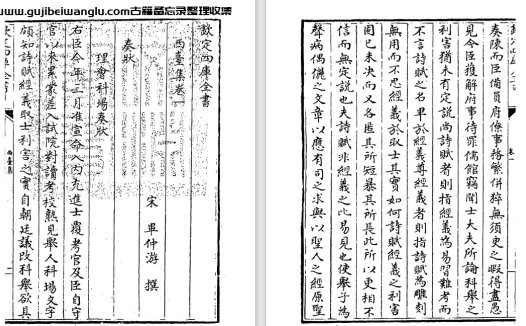 www.gujibeiwanglu.com古籍备忘录整理收集
欽定四庫全書
西臺集卷一
宋 畢仲游 撰
奏狀
理會科場奏狀
右臣今年三月准宣命入内充進士覆考官及臣自守
官以來累蒙差入試院對讀考校熟見舉人科場文字
頗知詩賦經義取士利害之實自朝廷議改科舉欲具
奏陳而臣備員府僚事務繁併猝無須臾之暇得盡愚
見今臣獲解府事待罪儒館竊聞士大夫所論科舉之
利害猶未有定説尚詩賦者則指經義為易習難考而
不言詩賦之名卑於經義尊經義者則指詩賦為雕刻
無用而不思經義於取士其實如何詩賦經義之利害
固已未決而又各匿其所短暴其所長此所以更相不
信而無定説也夫詩賦非經義之比易見也使舉子為
聲病偶儷之文章以應有司之求與以聖人之經原聖